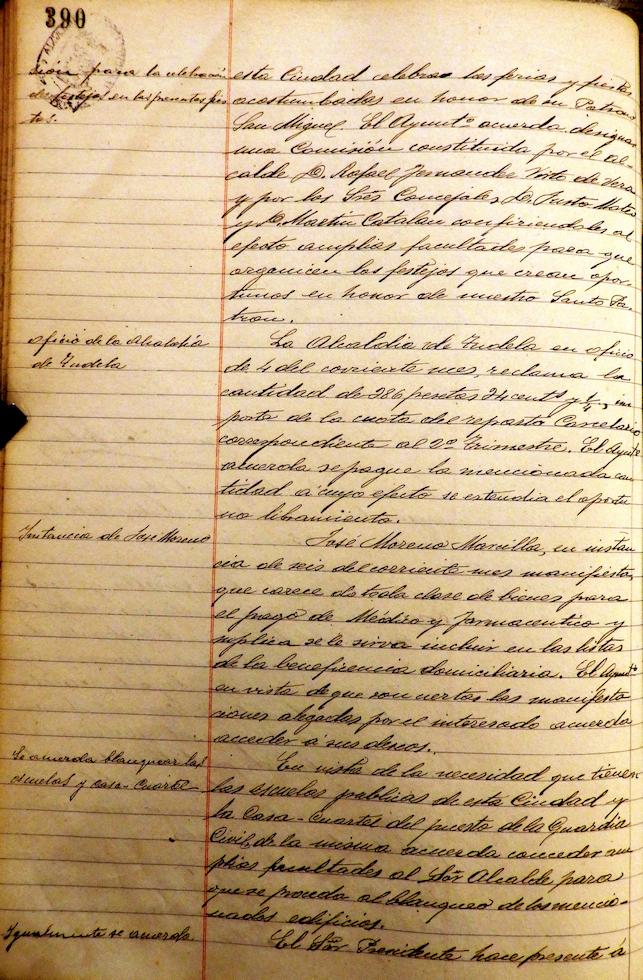 390
sion para la celebración
de festejos en las proximas fies
tas.
esta Ciudad celebra las ferias y fiestas
acostumbradas en honor de su Patrono
San Miguel. El Ayuntº acuerda designar
una Comisión constituita por el al-
calde D. Rafael Fernandez Virto de Vera
y por los Sres Concejales D. Justo Mata
y D. Martin Catalan confiriendoles al
efecto amplias facultades para que
organicen los festejos que crean opor
tunos en honor de nuestro Santo Pa-
tron.
Oficio de la Alcaldía
de Tudela
La Alcaldia de Tudela en oficio
de 4 del corriente mes, reclama la
cantidad de 286 pesetas 24 cents y 1/4, im
porte de la cuota del reparto Carcelario
correspondiente al 2º Trimestre. El Ayuntº
acuerda se pague la mencionada can
tidad á cuyo efecto se estendia el oportu
no libramiento.
Instancia de Jose Moreno
José Moreno Marcilla, en instan
cia de seis del corriente mes manifiesta
que carece de toda clase de bienes para
el pago de Médico y farmaceutico y
suplica se le sirva incluir en las listas
de la beneficencia domiciliaria. El Ayuntº
en vista de que son ciertas las manifesta
ciones alegadas por el interesado acuerda
acceder á sus deseos.
Se acuerda blanquear las
escuelas y casa-Cuartel
En vista de la necesidad que tienen
las escuelas publicas de esta Ciudad y
la Casa-Cuartel del puesto de la Guardia
Civil, de la misma acuerda conceder am
plias facultades al Sor Alcalde para
que se proceda al blanqueo de los mencio-
nados edificios.
Igualmente se acuerda
El Sor Presidente hace presente á